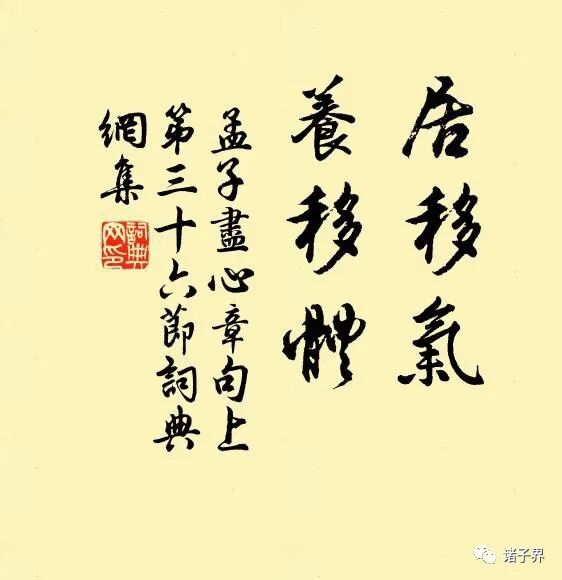 居移氣
養移體
孟子盡心章句上
第三十六節詞典
網集
詞典網印
诸子界